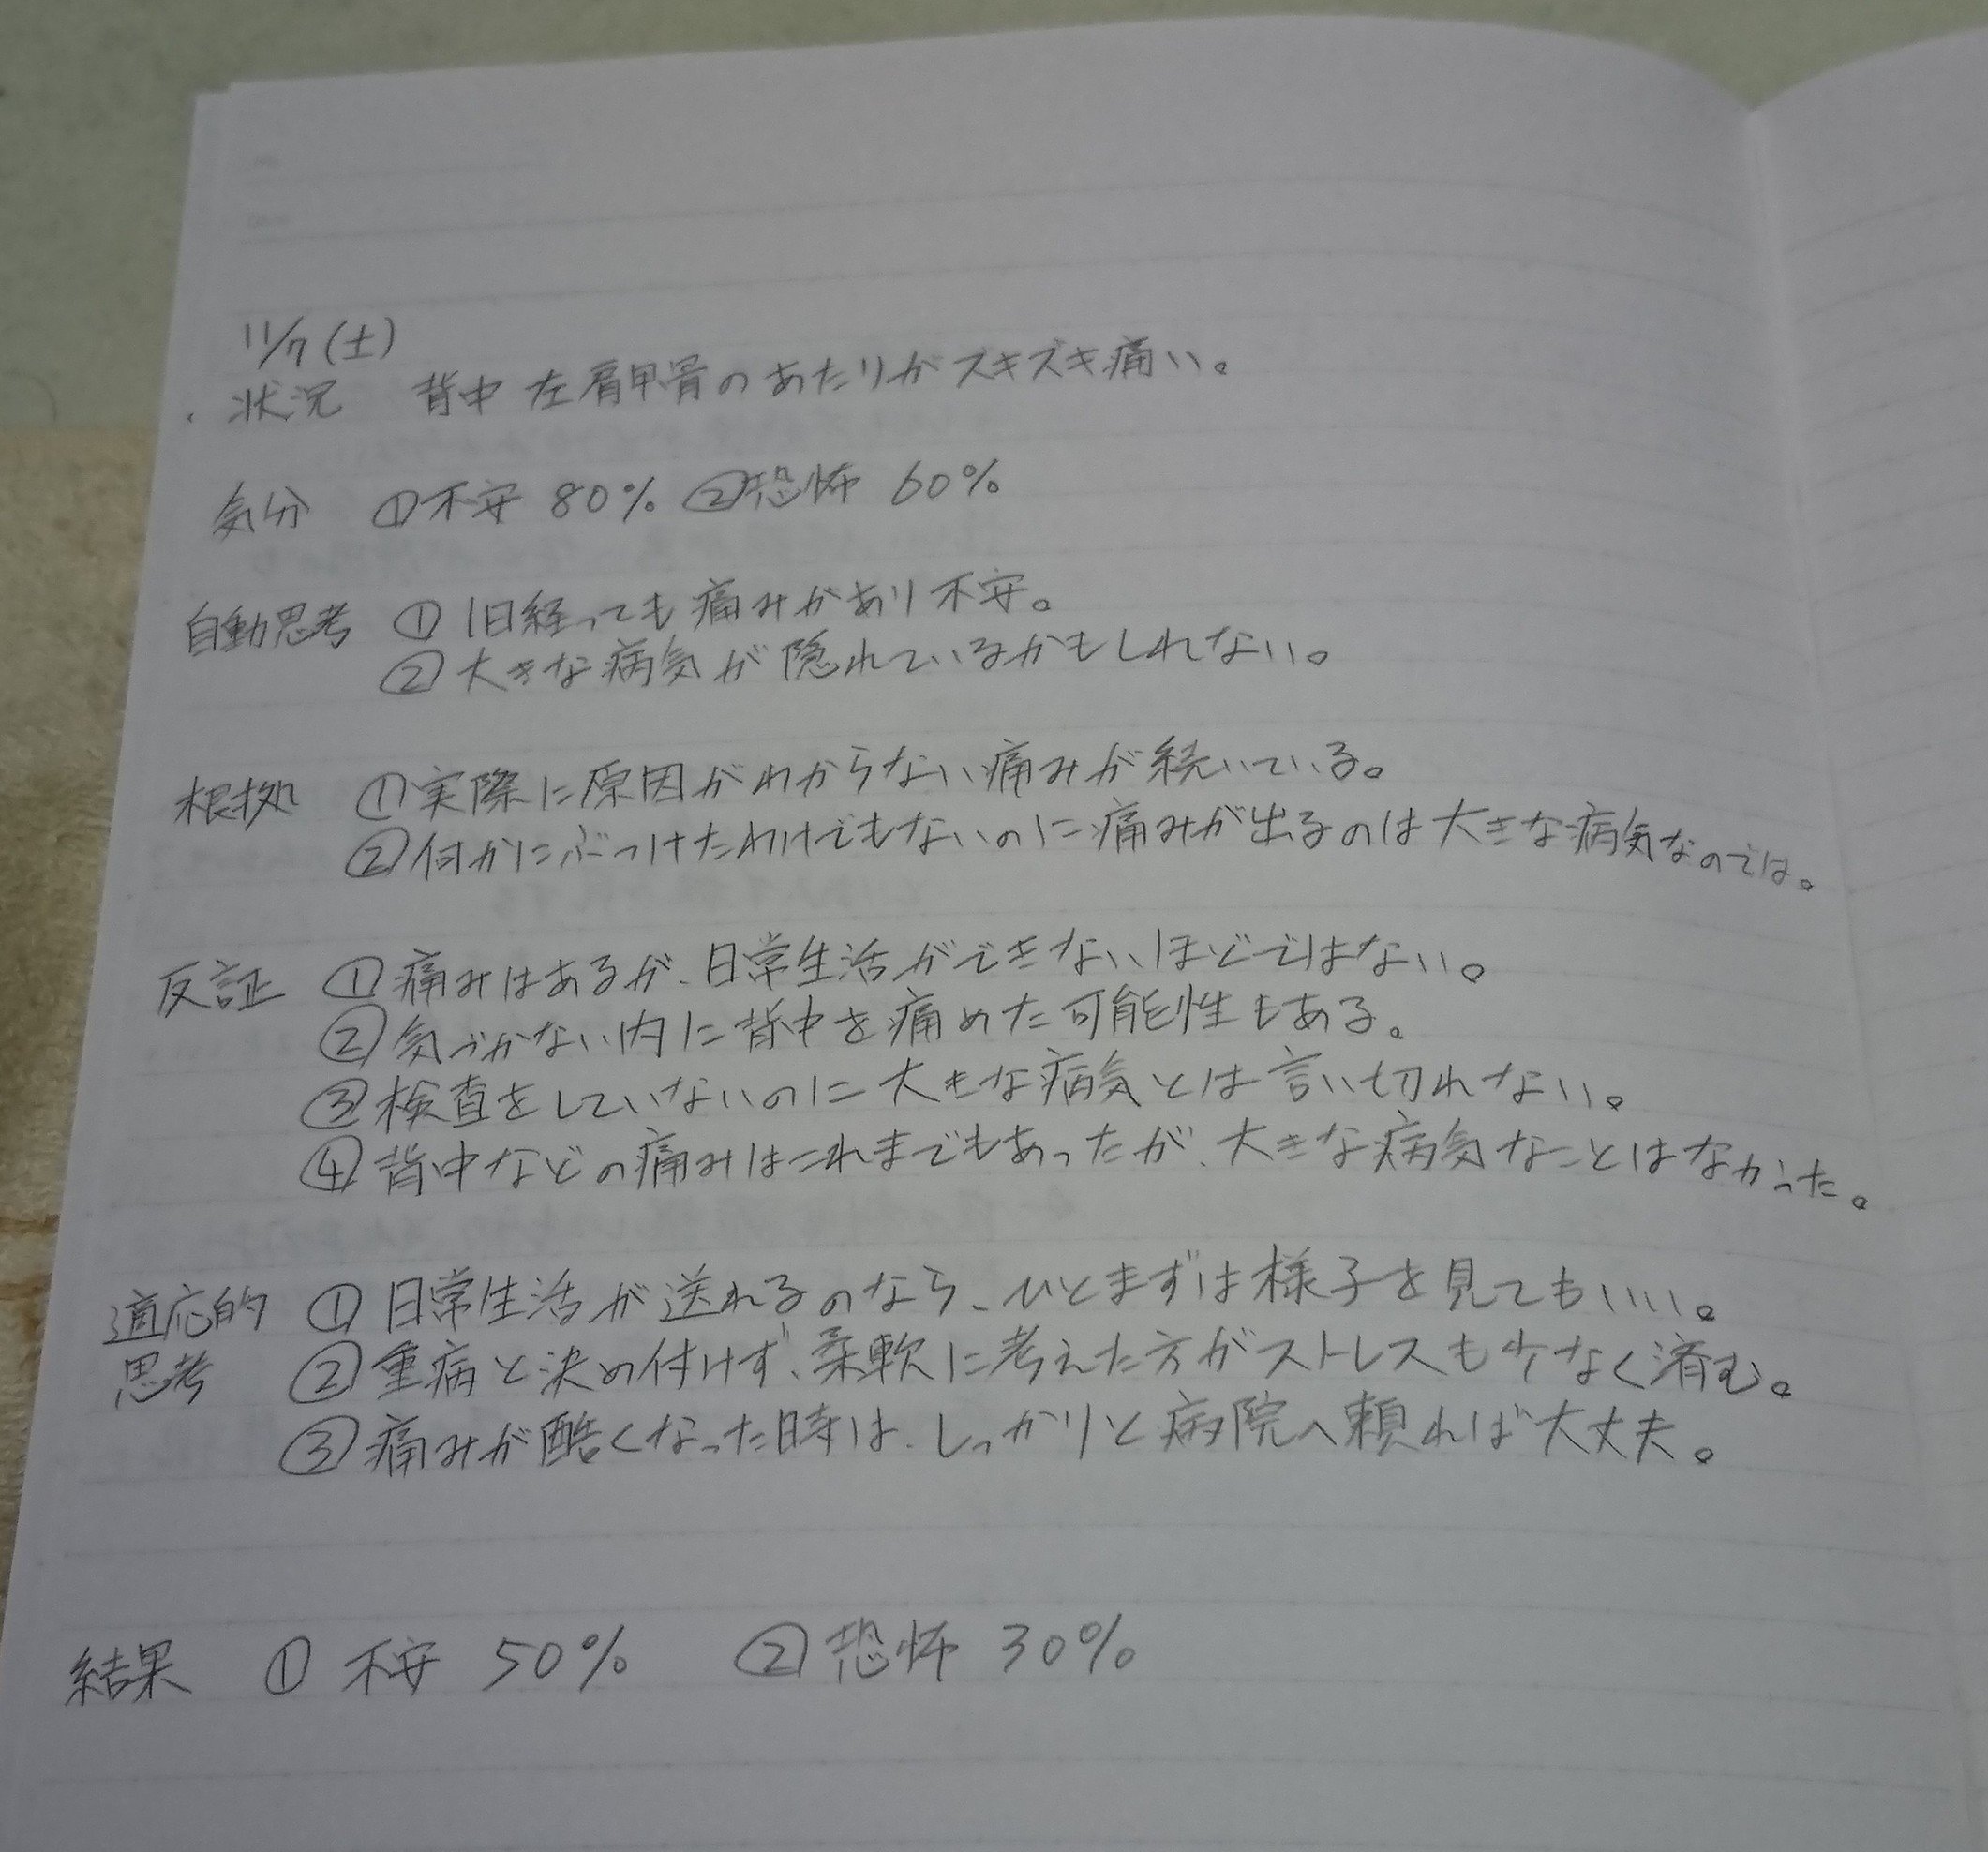 11/7(土)
・状況 背中 左肩甲骨のあたりがズキズキ痛い。
気分 ①不安 80% ②恐怖 60%
自動思考 ① 1日経っても痛みがあり不安。
② 大きな病気が隠れているかもしれない。
根拠 ①実際に原因がわからない痛みが続いている。
②何かにぶつけたわけでもないのに痛みが出るのは大きな病気なのでは。
反証 ①痛みはあるが、日常生活ができないほどではない。
②気づかない内に背中を痛めた可能性もある。
③検査をしていないのに大きな病気とは言い切れない。
④背中などの痛みはこれまでもあったが、大きな病気なことはなかった。
適応的 ① 日常生活が送れるのなら、ひとまずは様子を見てもいい。
思考 ② 重病と決め付けず、柔軟に考えた方がストレスも少なく済む。
③ 痛みが酷くなった時は、しっかりと病院へ頼れば大丈夫。
結果 ① 不安 50% ② 恐怖 30%